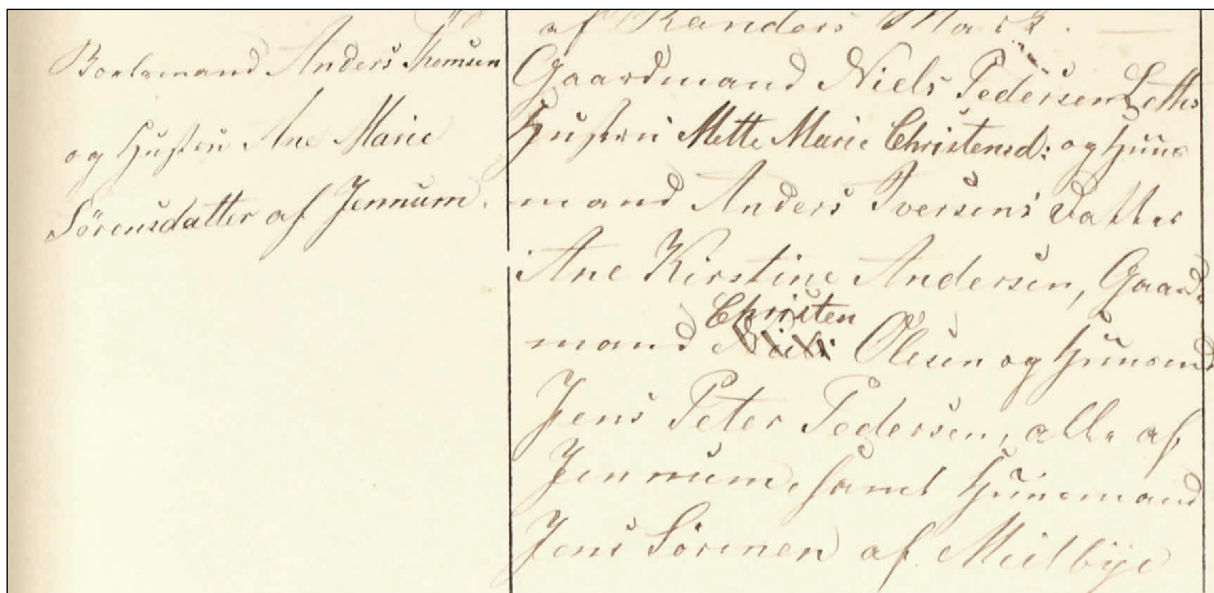 Boelsmand Anders Thomsen
og Hustru Ane Marie
Sørensdatter af Jennum.
af Randers Mark. —
Gaardmand Niels Pedersen Leths
Hustru Mette Marie Christensd: og Huus
mand Anders Iversens Datter
Ane Kirstine Andersen, Gaard
mand Christen Olesen og Huusmd
Jens Peter Pedersen, alle af
Jennum, samt Huusmand
Jens Sørensen af Meilbye